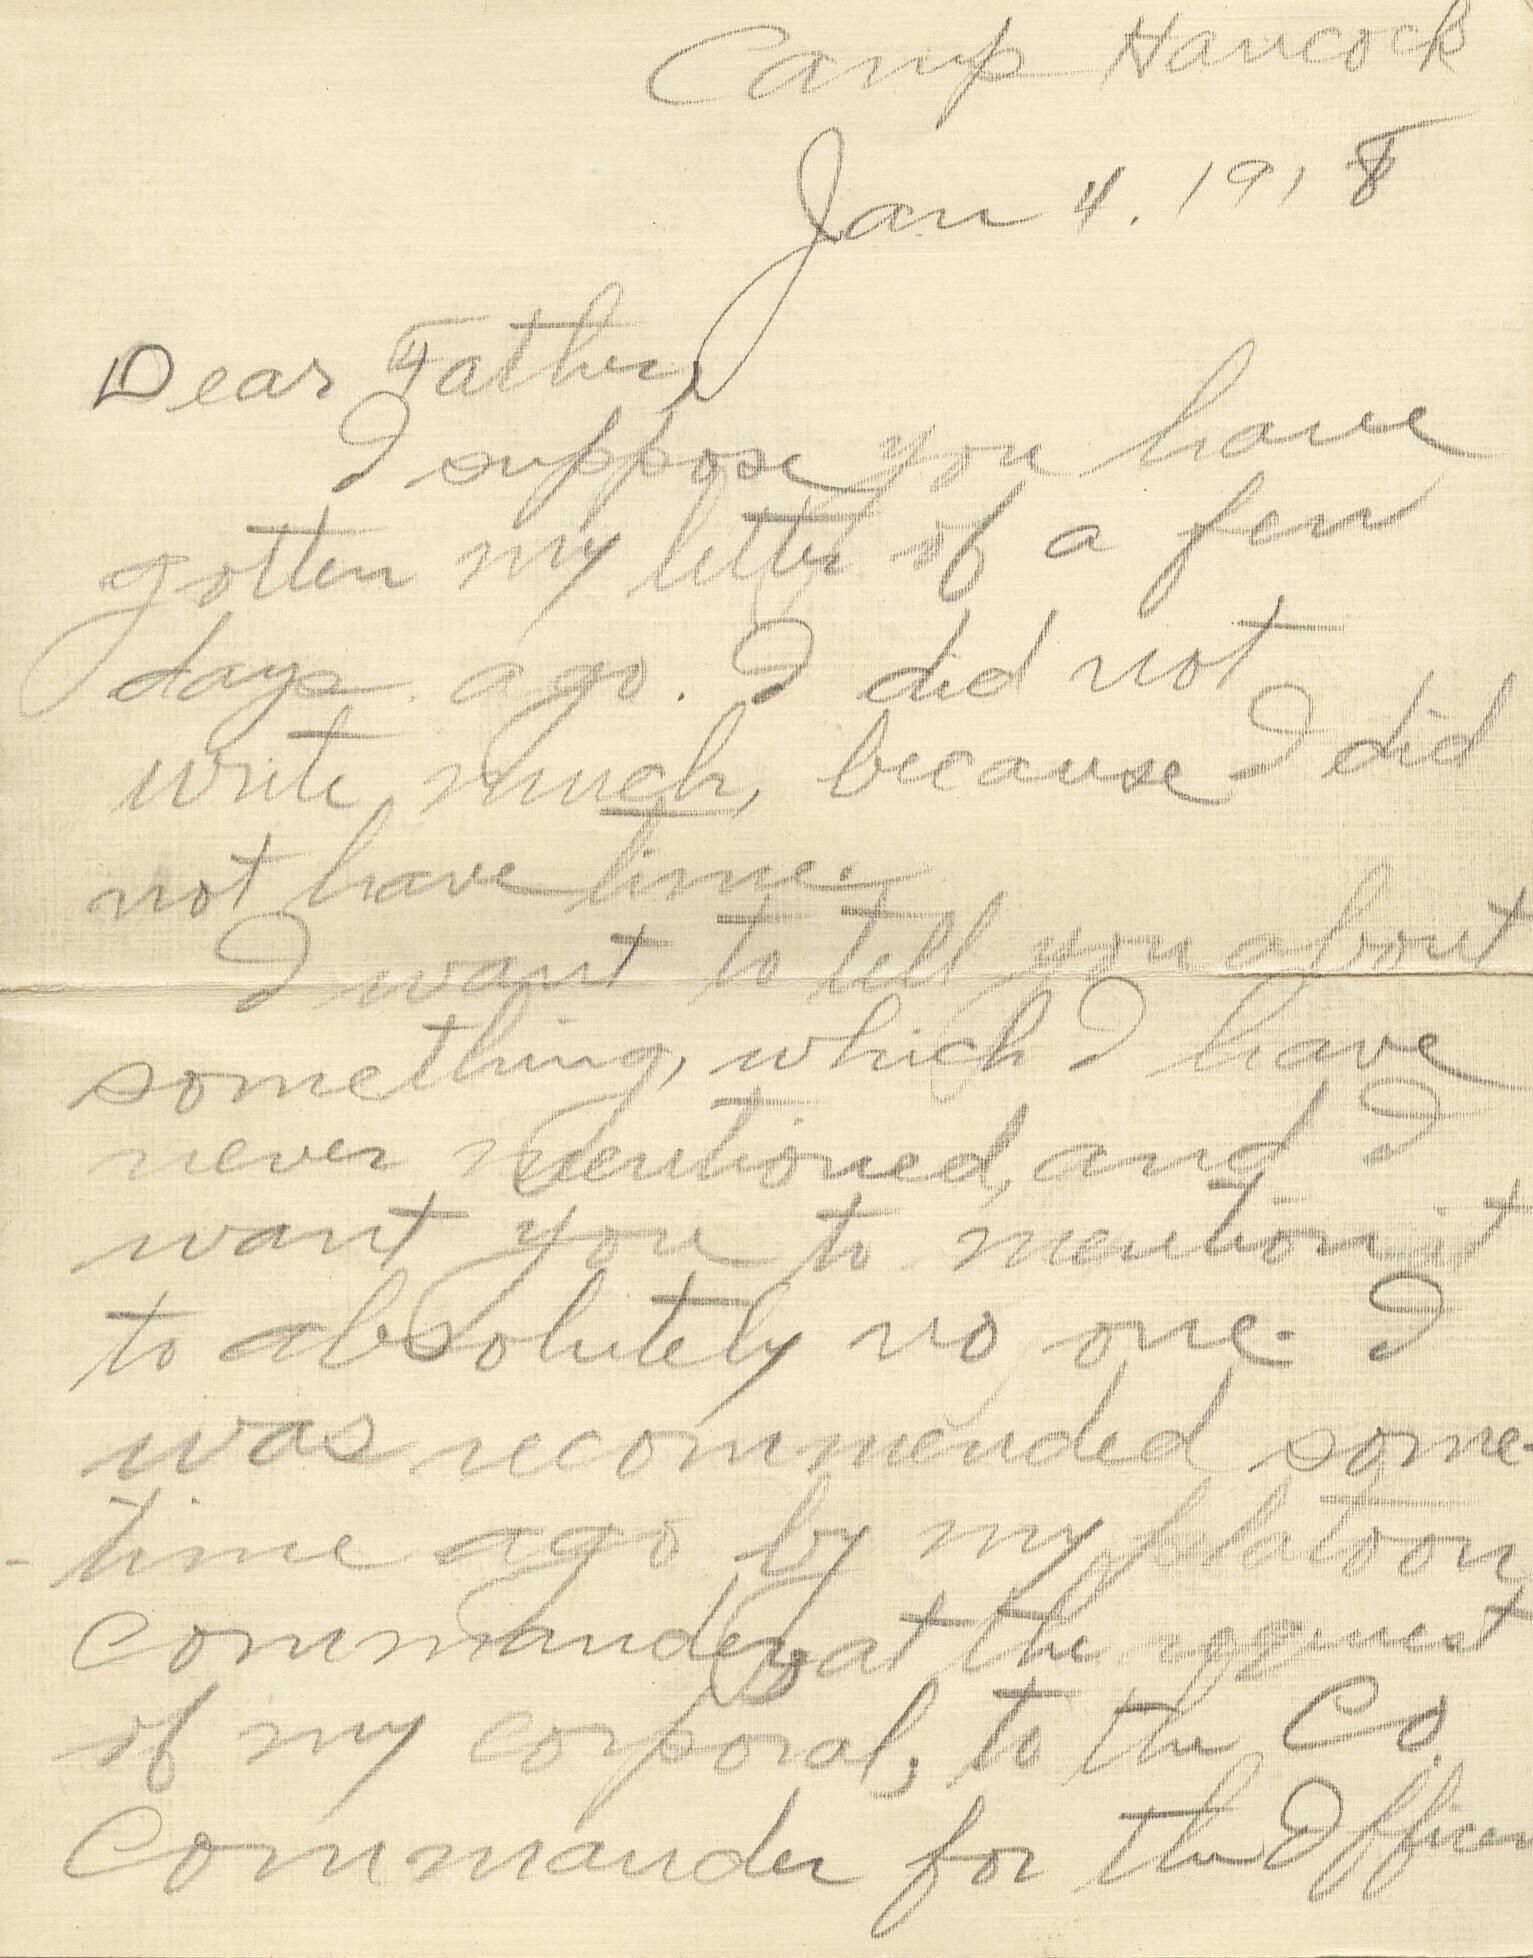 Camp Hancock
Jan 4. 1918
Dear Father,
I suppose you have
gotten my letter of a few
days ago. I did not
write much, because I did
not have time.
I want to tell you about
something, which I have
never mentioned, and I
want you to mention it
to absolutely no one. I
was recommended some-
-time ago by my platoon
commander, at the request
of my corporal, to the Co.
Commander for the Officers